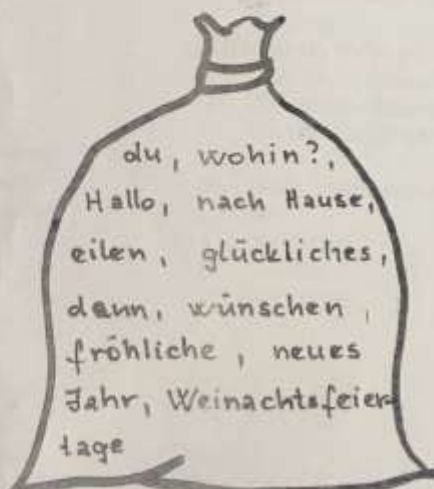 du, wohin?,
Hallo, nach Hause,
eilen, glückliches,
dann, wünschen,
fröhliche, neues
Jahr, Weinachtsfeier-
tage